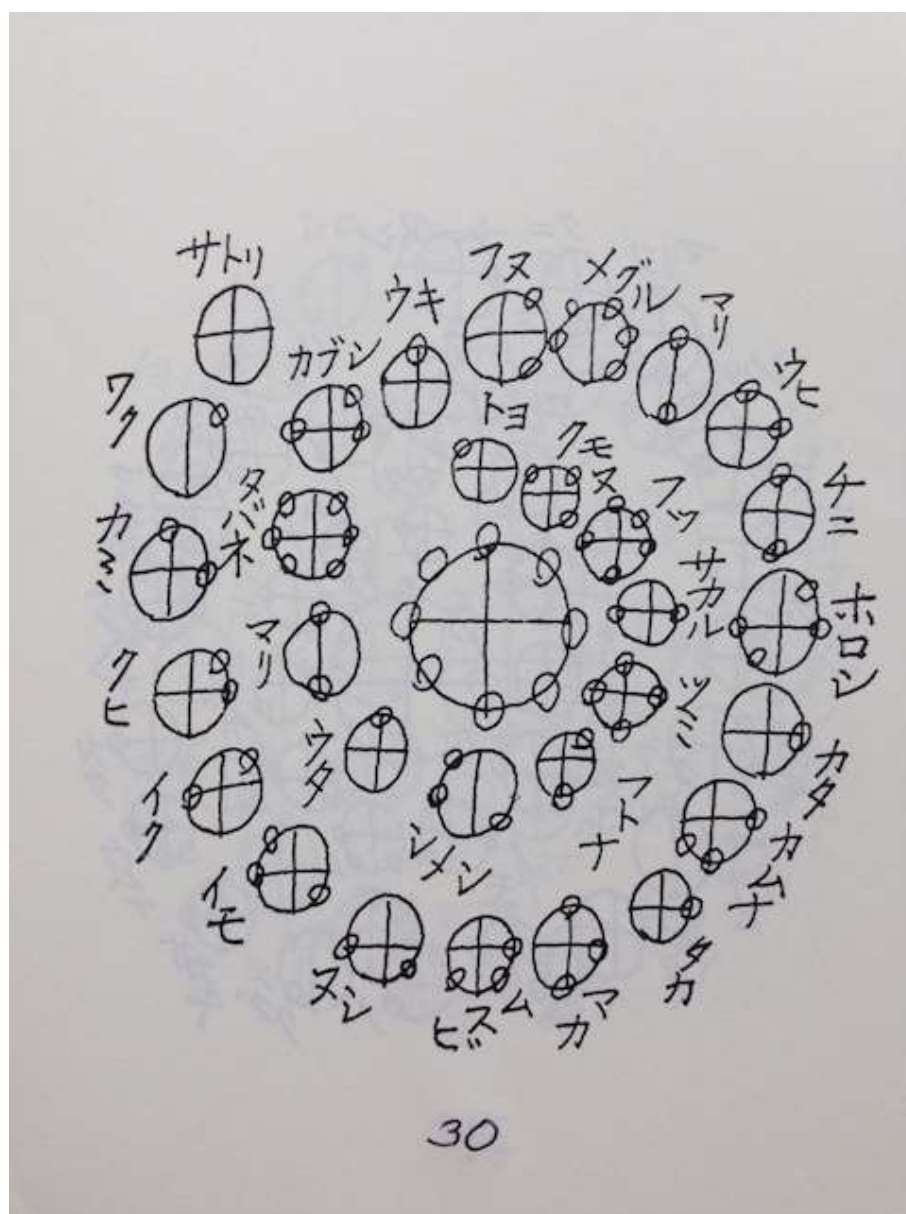 サトリ
ワク
カミ
クヒ
イク
イモ
ヌシ
ムスビ
マカ
タカ
カムナ
カタ
ホロシ
チニ
ウヒ
マリ
メグル
フヌ
ウキ
カブシ
タバネ
マリ
ウタ
シメシ
マトナ
ツミ
サカル
フッ
クモヌ
トヨ
30